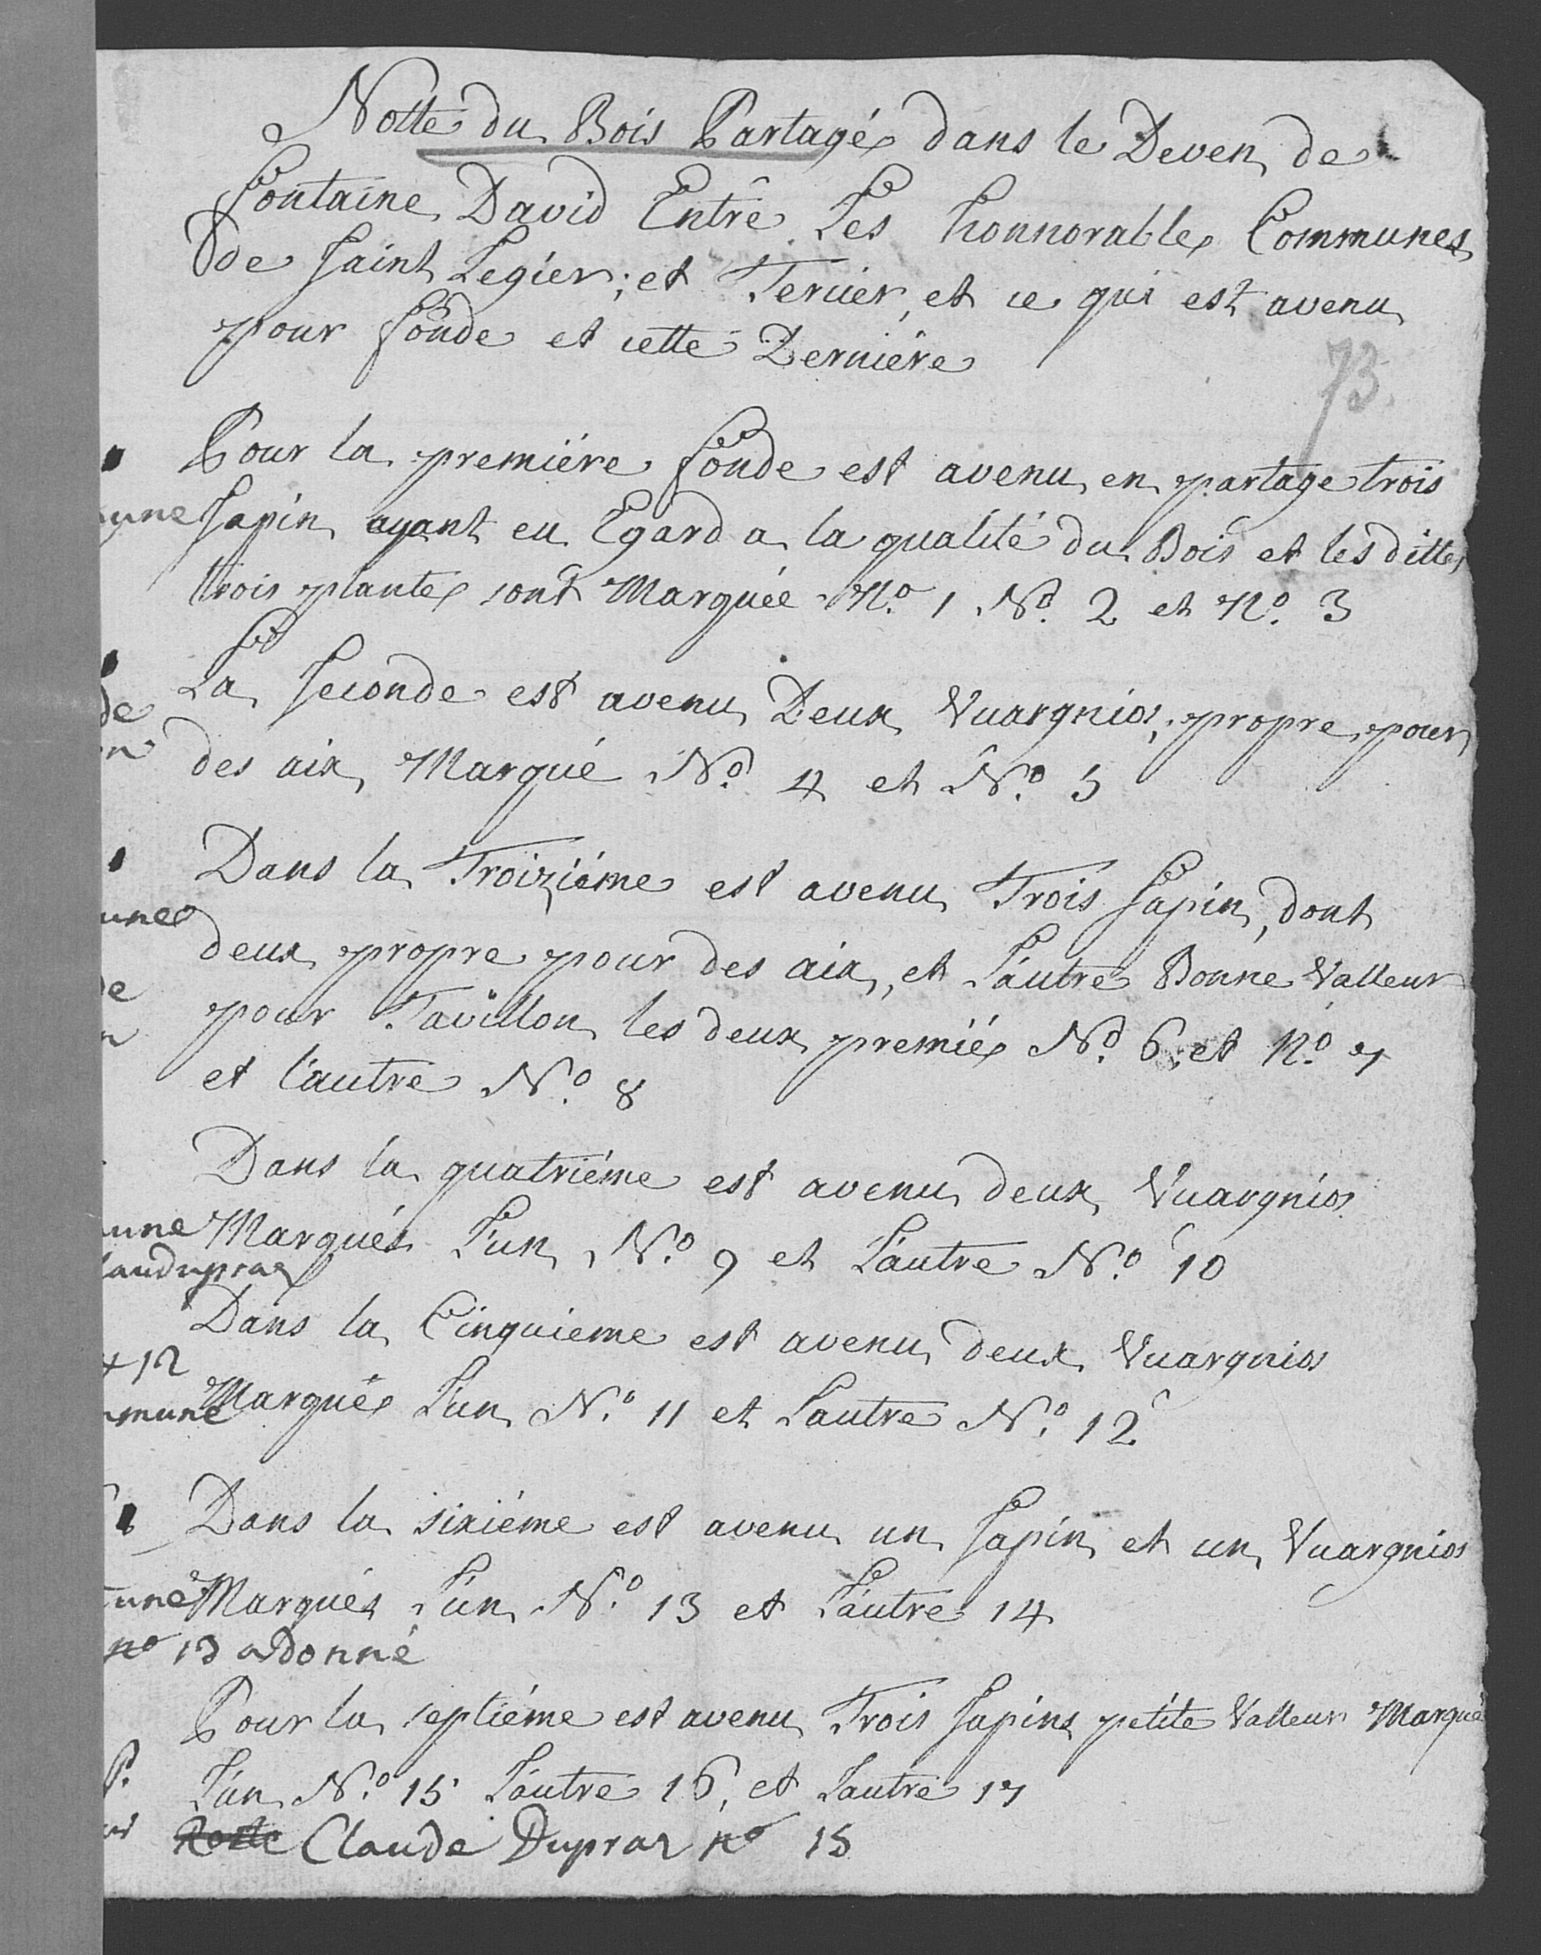 Notte du Bois Partagé dans le Deven de
fontaine David Entre Les honnorable Communes
de Saint Legier; et Tercier, et ce qui est avenu
pour fonde et cette Derniére
73.
Pour la premiére fonde est avenu en partage trois
une
Sapin ayant eu Egard a la qualité du Bois et les ditte
trois plante sont Marquée No. 1 No. 2 et No. 3
La Seconde est avenu Deux Vuargnios, propre pour
de
des aix, Marqué No. 4 et No. 5
n
Dans la Troiziéme est avenu Trois Sapin, dont
une
deux propre pour des aix, et L'autre Bonne Valleur
de
pour Tavillon les deux premié No. 6, et No. 7
n
et l'autre No. 8
Dans la quatriéme est avenu deux Vuargnios
une
Marqués L'un, No. 9 et L'autre No. 10
laudupraz
Dans la Cinquieme est avenu deux Vuargnios
12
Marqués L'un No. 11 et L'autre No. 12
mmune
Dans la sixiéme est avenu un Sapin et un Vuargnios
une
Marqués L'un No. 13 et L'autre 14
no 13 a donné
Pour la septiéme est avenu Trois Sapins petite Valleur Marqué
L'un No. 15 L'autre 16, et L'autre 17
Claude Dupraz no 15